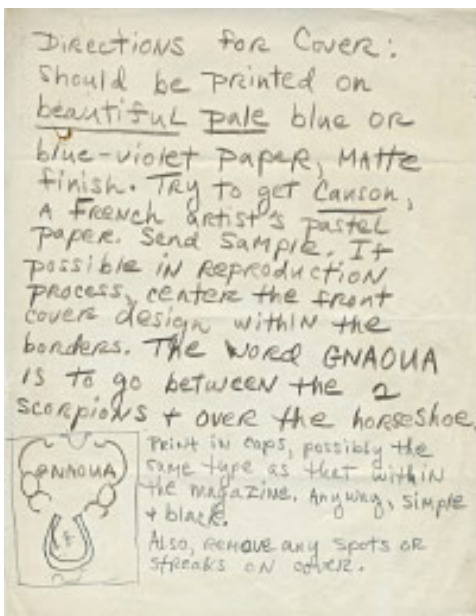 Directions for Cover:
Should be printed on
beautiful pale blue or
blue-violet paper, Matte
finish. Try to get Canson,
a French artist's pastel
paper. Send sample. If
possible in reproduction
process, center the front
cover design within the
borders. The word GNAOUA
is to go between the 2
scorpions + over the horseshoe.
GNAOUA
Print in caps, possibly the
same type as that within
the magazine. Anyway, simple
+ black.
Also, remove any spots or
streaks on cover.